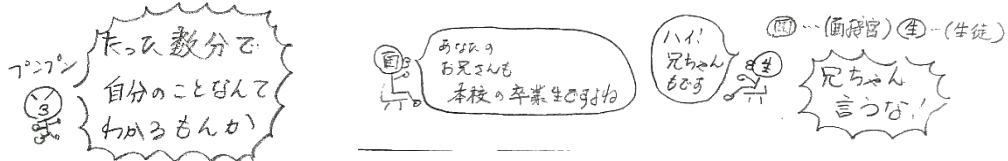 プンプン
たった数分で
自分のことなんて
わかるもんか
面
あなたの
お兄さんも
本校の卒業生ですよね
ハイ!
兄ちゃん
もです
生
面…(面接官) 生…(生徒)
兄ちゃん
言うな!